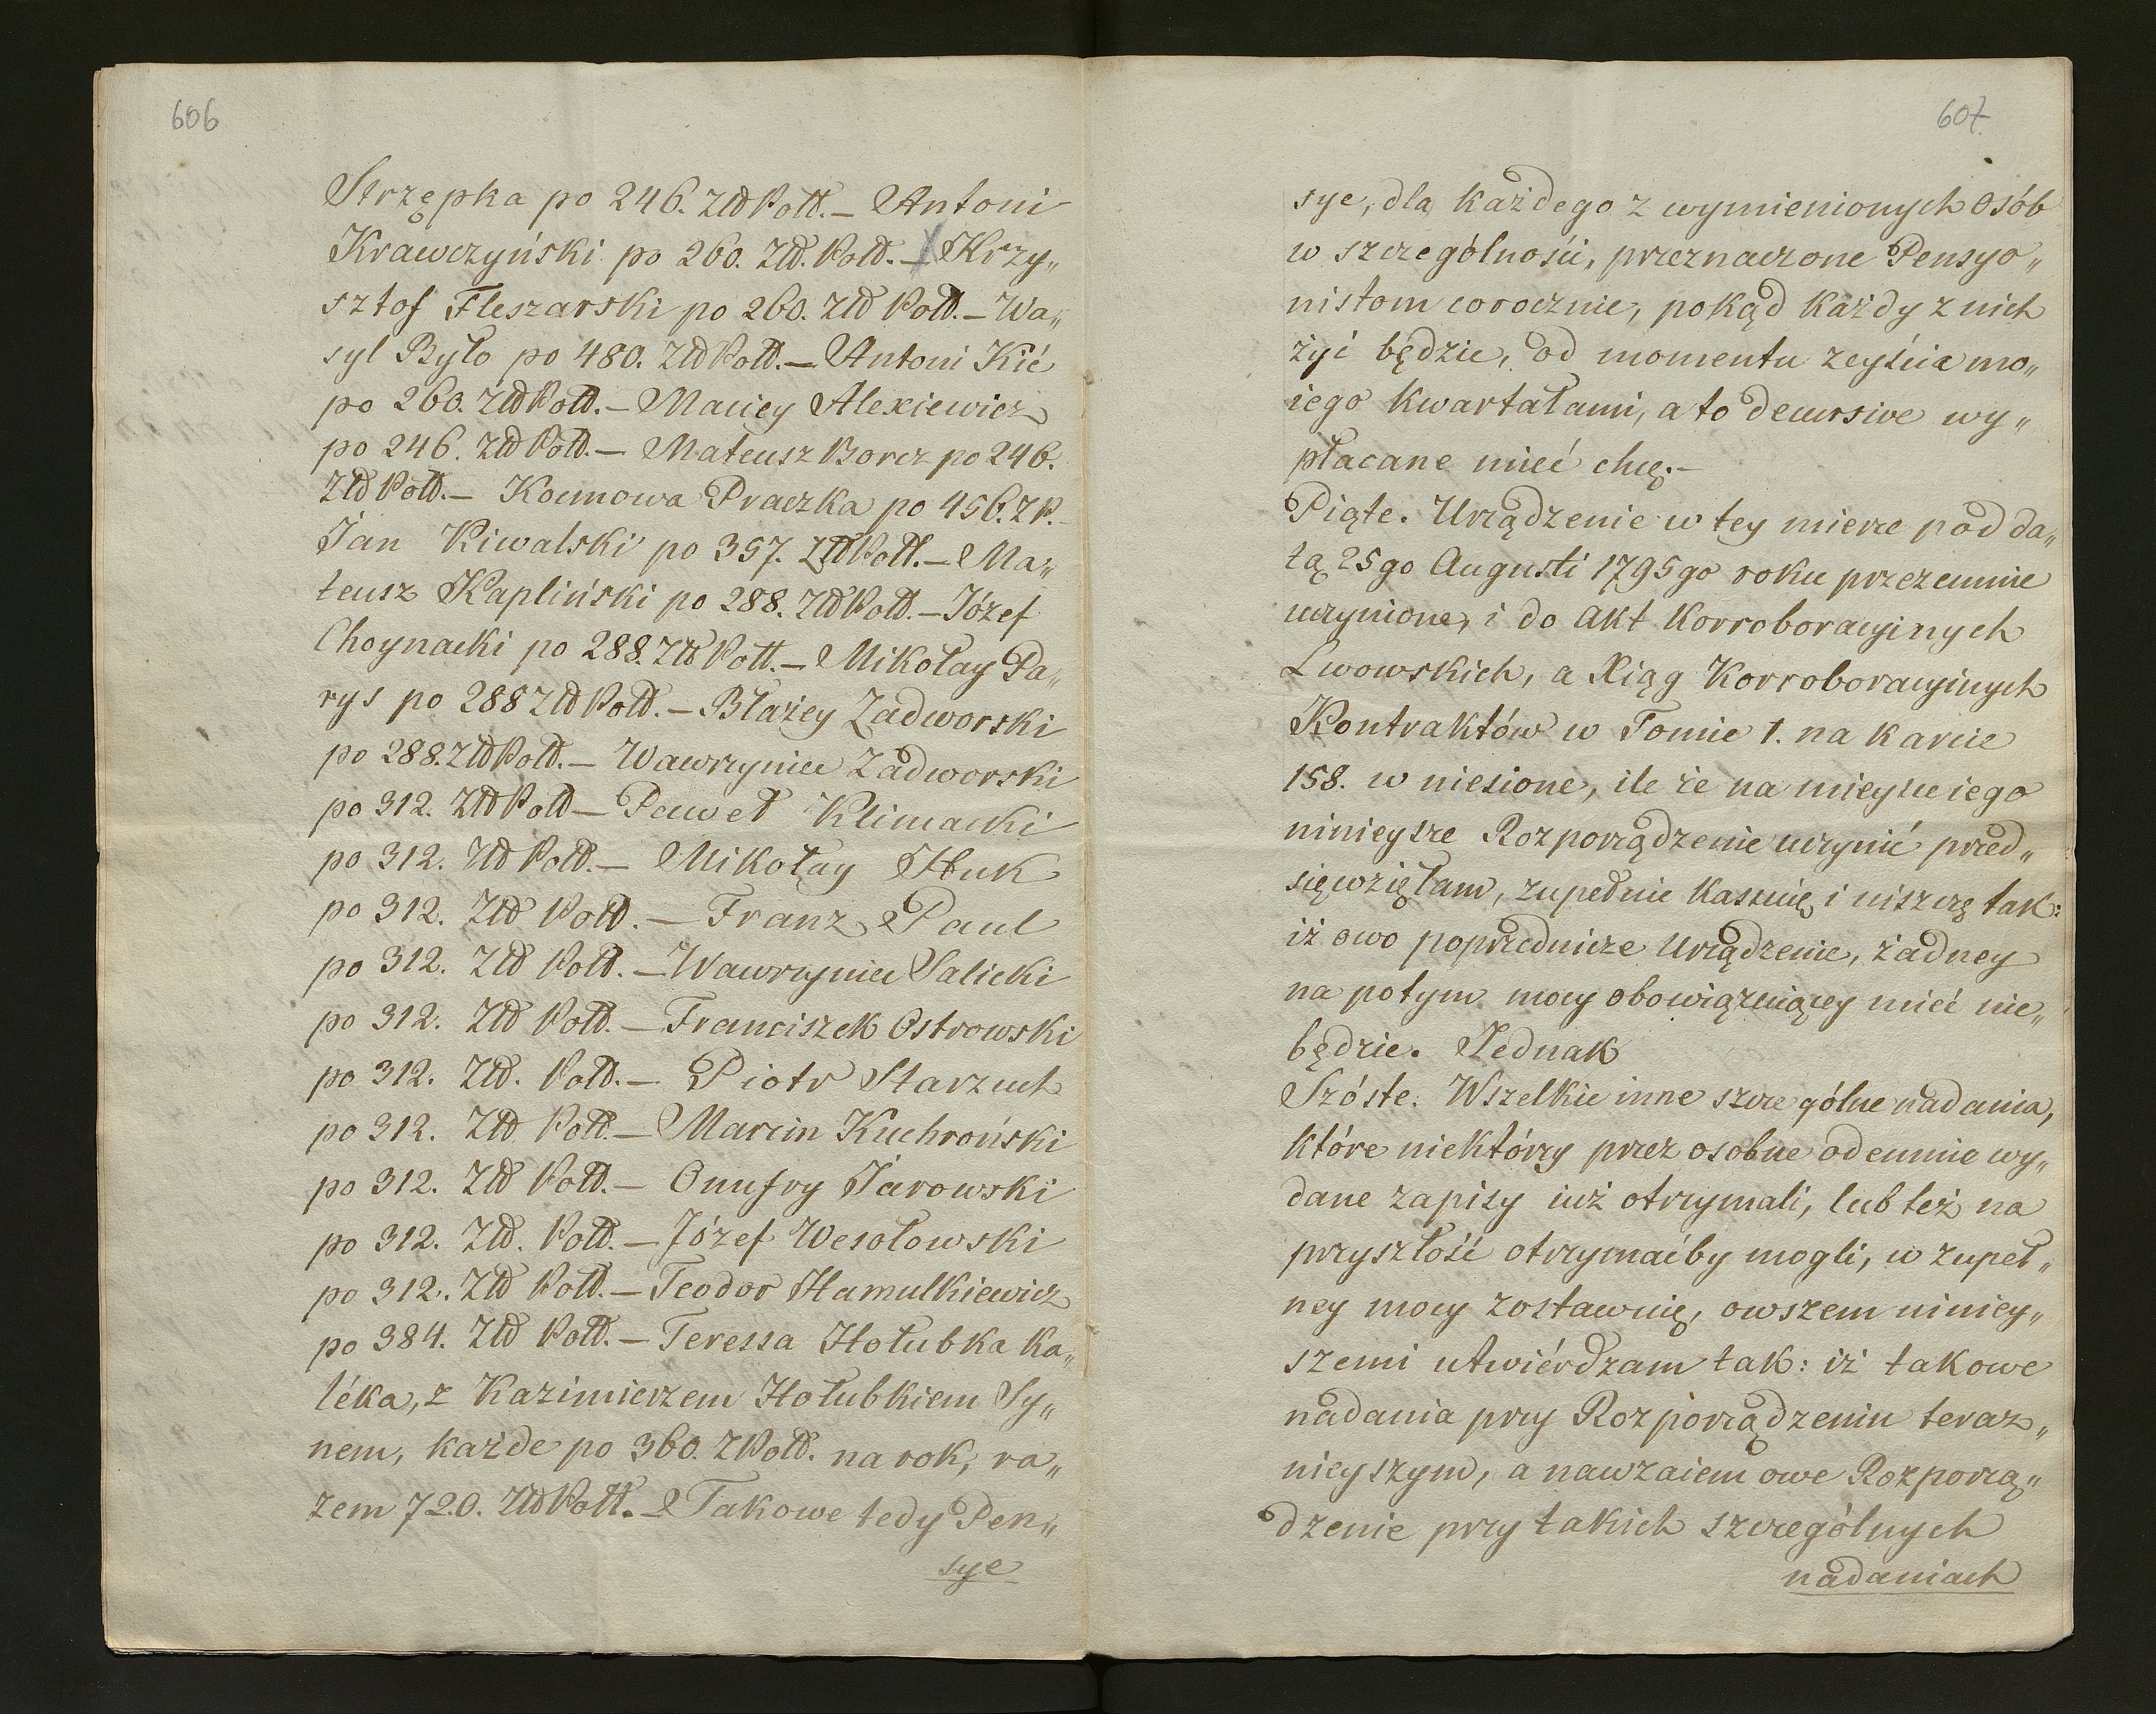 606
Strzępka po 246. Złd Polld. – Antoni
Krawczyński po 260. Złd. Polld. – Krzy„
sztof Fleszarski po 260. Złd Polld. – Wa„
syl Było po 480. Złd Polld. – Antoni Kić
po 260. Złd Polld. – Maciey Alexiewicz
po 246. Złd Polld. – Mateusz Borcz po 246.
Złd Polld. – Kocmowa Praczka po 456. Z P. –
Jan Kiwalski po 357. Złd Polld. – Ma„
teusz Kapliński po 288. Złd Polld. – Józef
Choynacki po 288. Złd Polld. – Mikołay Pa„
rys po 288 Złd Polld. – Błażey Zadworski
po 288. Złd Polld. – Wawrzyniec Zadworski
po 312. Złd Polld – Paweł Klimacki
po 312. Złd Polld. – Mikołay Huk
po 312. Złd Polld. – Franz Paul
po 312. Złd Polld. – Wawrzyniec Salicki
po 312. Złd Polld. – Franciszek Ostrowski
po 312. Złd. Polld. – Piotr Starzuch
po 312. Złd Polld. – Marcin Kuchroński
po 312. Złd Polld. – Onufry Jarowski
po 312. Złd. Polld. – Józef Wesołowski
po 312. Złd Polld. – Teodor Hamulkiewicz
po 384. Złd Polld. – Teressa Hołubka Ka„
léka, z Kazimierzem Hołubkiem Sy„
nem, każde po 360. Z Polld. na rok, ra„
zem 720. Złd Polld. – Takowe tedy Pen„
sye
607.
sye, dla każdego z wymienionych osób
w szczególności, przeznaczone Pensyo„
nistom corocznie, pokąd każdy z nich
żyć będzie, od momentu zeyścia mo„
iego kwartałami, a to decursive wy„
płacane mieć chcę. –
Piąte. Urządzenie w tey mierze pod da„
tą 25go Augusti 1795go roku przezemnie
uczynione, i do Akt Korroboracyinych
Lwowskich, a Xiąg Korroboracyinych
Kontraktów w Tomie 1. na karcie
158. w niesione, ile że na mieysce iego
ninieysze Rozporządzenie uczynić przed„
sięwzięłam, zupełnie kassuię i niszczę tak:
iż owo poprzednicze Urządzenie, żadney
na potym mocy obowiązuiącey mieć nie„
będzie. Jednak
Szóste. Wszelkie inne szczególne nadania,
które niektórzy przez osobne odemnie wy„
dane zapisy iuż otrzymali, lub też na
przyszłość otrzymać by mogli, w zupeł„
ney mocy zostawuię, owszem niniey„
szemi utwiérdzam tak: iż takowe
nadania przy Rozporządzeniu teraz„
nieyszym, a nawzaiem owe Rozporzą„
dzenie przy takich szczególnych
nadaniach